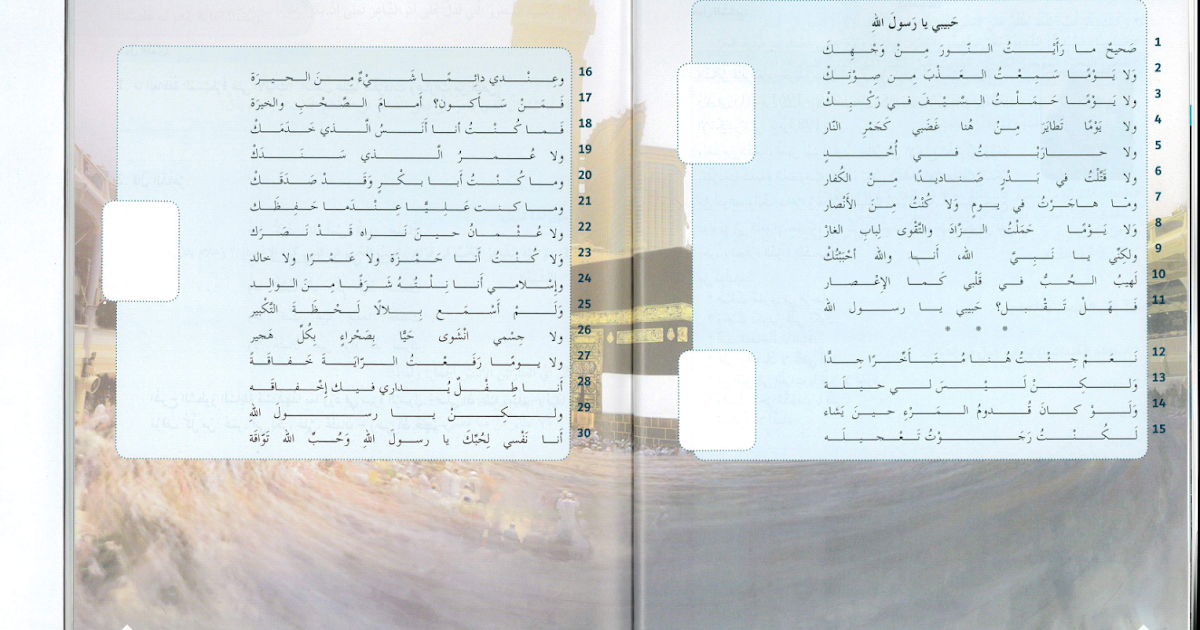 حَبيبي يا رَسولَ اللهِ
1 صَحيحٌ ما رَأَيْتُ النّورَ مِنْ وَجْهِكَ
2 وَلا يَوْمًا سَمِعْتُ العَذْبَ مِن صِوْتِكْ
3 ولا يَوْمًا حَمَلْتُ السَّيْفَ في رَكْبِكْ
4 ولا يَوْمًا تَطايَرَ مِنْ هُنا غَضَبي كَجَمْرِ النّار
5 ولا حارَبْتُ في أُحُدٍ
6 ولا قَتَلْتُ في بَدْرٍ صَناديدًا مِنْ الكُفار
7 ومَا هاجَرْتُ في يومٍ وَلا كُنْتُ مِنَ الأَنْصار
8 وَلا يَوْمًا حَمَلْتُ الزّادَ والتَّقْوى لِبابِ الغارْ
9 ولكِنّي يا نَبِيَّ الله، أَنا والله أَحْبَبْتُكْ
10 لَهيبُ الحُبُّ في قَلْبي كَما الإعْصار
11 فَهَلْ تَقْبل؟ حَبيبي يا رسول الله
* * *
12 نَعَمْ جِئْتُ هُنا مُتَأَخّرًا جِدًّا
13 وَلكِنْ لَيْسَ لي حيلَة
14 وَلَوْ كانَ قُدومُ المَرْءِ حينَ يَشاء
15 لَكُنْتُ رَجَوْتُ تَعْجيلَه
16 وعِنْدي دائِمًا شَيْءٌ مِنَ الحيرَة
17 فَمَنْ سَأَكون؟ أَمامَ الصَّحْبِ والخيرَة
18 فَما كُنْتُ أنا أَنَسُ الَّذي خَدَمَكْ
19 ولا عُمَرُ الَّذي سَنَدَكْ
20 وما كُنْتُ أَبا بكْرٍ وَقَدْ صَدَقَكْ
21 وما كنت عَلِيًّا عِنْدَما حَفِظَك
22 ولا عُثْمانُ حينَ نَراه قَدْ نَصَرَك
23 وَلا كُنْتُ أَنا حَمْزَة ولا عَمْرًا ولا خالد
24 وإسْلامي أَنا نِلْتُهُ شَرَفًا مِنَ الوالِد
25 وَلَمْ أَسْمَع بِلالًا لَحْظَةَ التَّكْبير
26 ولا جِسْمي انْشَوى حَيًّا بِصَحْراءٍ بِكُلِّ هَجير
27 ولا يومًا رَفَعْتُ الرّايَةَ خَفاقَةً
28 أَنا طِفْلٌ يُداري فيك إخْفاقَه
29 ولكِنْ يا رسولُ الله
30 أَنا نَفْسي لِحُبِّكَ يا رسولَ اللهِ وَحُبِّ الله تَوّاقَة